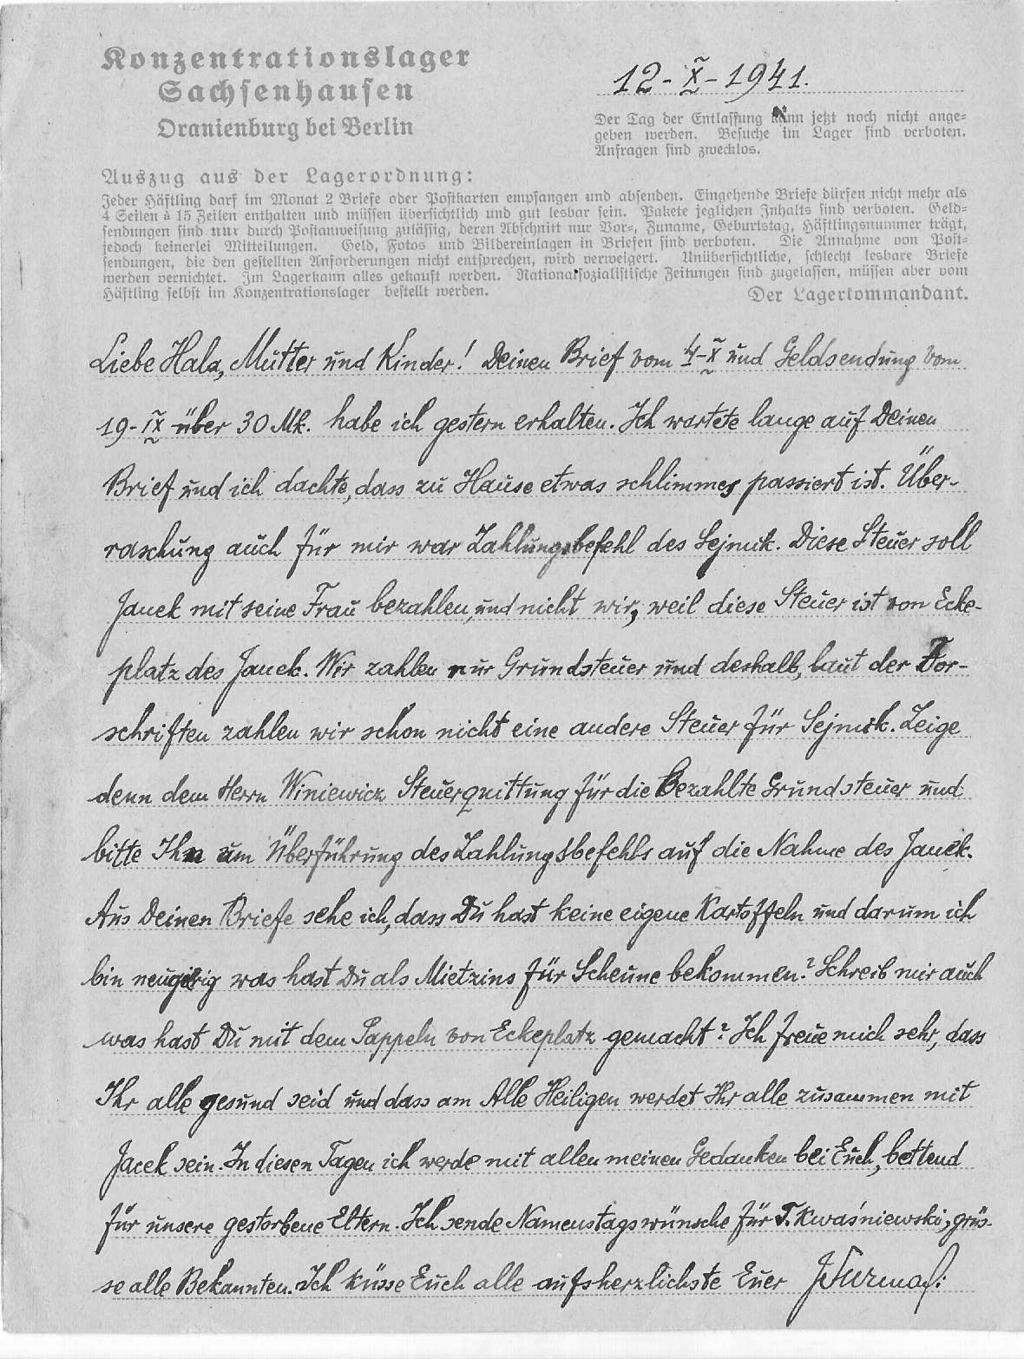 Konzentrationslager
Sachsenhausen
Oranienburg bei Berlin
12-X-1941.
Der Tag der Entlassung kann jetzt noch nicht ange-
geben werden. Besuche im Lager sind verboten.
Anfragen sind zwecklos.
Auszug aus der Lagerordnung:
Jeder Häftling darf im Monat 2 Briefe oder Postkarten empfangen und absenden. Eingehende Briefe dürfen nicht mehr als
4 Seiten à 15 Zeilen enthalten und müssen übersichtlich und gut lesbar sein. Pakete jeglichen Inhalts sind verboten. Geld-
sendungen sind nur durch Postanweisung zulässig, deren Abschnitt nur Vor-, Zuname, Geburtstag, Häftlingsnummer trägt,
jedoch keinerlei Mitteilungen. Geld, Fotos und Bildereinlagen in Briefen sind verboten. Die Annahme von Post-
sendungen, die den gestellten Anforderungen nicht entsprechen, wird verweigert. Unübersichtliche, schlecht lesbare Briefe
werden vernichtet. Im Lager kann alles gekauft werden. Nationalsozialistische Zeitungen sind zugelassen, müssen aber vom
Häftling selbst im Konzentrationslager bestellt werden.
Der Lagerkommandant.
Liebe Hala, Mutter und Kinder! Deinen Brief vom 4-X und Geldsendung vom
19-IX über 30 Mk. habe ich gestern erhalten. Ich wartete lange auf Deinen
Brief und ich dachte, dass zu Hause etwas schlimmes passiert ist. Über-
raschung auch für mir war Zahlungsbefehl des Sejmik. Diese Steuer soll
Janek mit seine Frau bezahlen, und nicht wir, weil diese Steuer ist von Ecke-
platz des Janek. Wir zahlen nur Grundsteuer und deshalb, laut der Vor-
schriften zahlen wir schon nicht eine andere Steuer für Sejmik. Zeige
denn dem Herrn Winiewicz Steuerquittung für die Bezahlte Grundsteuer und
bitte Ihn um Überführung des Zahlungsbefehls auf die Nahme des Janek.
Aus Deinen Briefe sehe ich, dass Du hast keine eigene Kartoffeln und darum ich
bin neugierig was hast Du als Mietzins für Scheune bekommen? Schreib mir auch
was hast Du mit dem Pappeln von Eckeplatz gemacht? Ich freue mich sehr, dass
Ihr alle gesund seid und dass am Alle Heiligen werdet Ihr alle zusammen mit
Jacek sein. In diesen Tagen ich werde mit allen meinen Gedanken bei Euch, bettend
für unsere gestorbene Eltern. Ich sende Namenstagswünsche für T. Kwaśniewski, grüs-
se alle Bekannten. Ich küsse Euch alle aufsherzlichste Euer